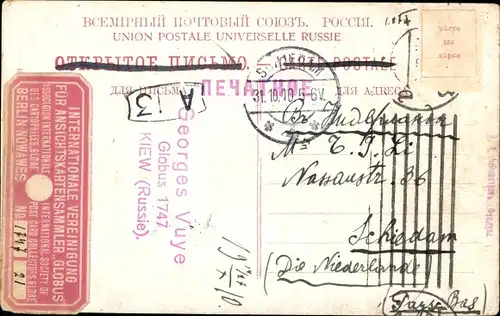 ВСЕМІРНЫЙ ПОЧТОВЫЙ СОЮЗЪ. РОССІЯ.
UNION POSTALE UNIVERSELLE RUSSIE
ОТКРЫТОЕ ПИСЬМО. POSTALE
ПЕЧАТНОЕ
ДЛЯ ПИСЬМА ДЛЯ АДРЕСА
Мѣсто
для
марки
SCHIEDAM
31.10.10 5-6V.
A 3
INTERNATIONALE VEREINIGUNG
FÜR ANSICHTSKARTENSAMMLER „GLOBUS“
ASSOCIATION INTERNATIONALE
DES CARTOPHILES GLOBE
INTERNATIONAL SOCIETY OF
POST CARD COLLECTORS GLOBE
BERLIN-NOWAWES
No 1747
21
Georges Vuye
Globus 1747,
KIEW (Russie).
Mr
Nassaustr. 36
Schiedam
(Die Niederlande
(Pays-Bas)